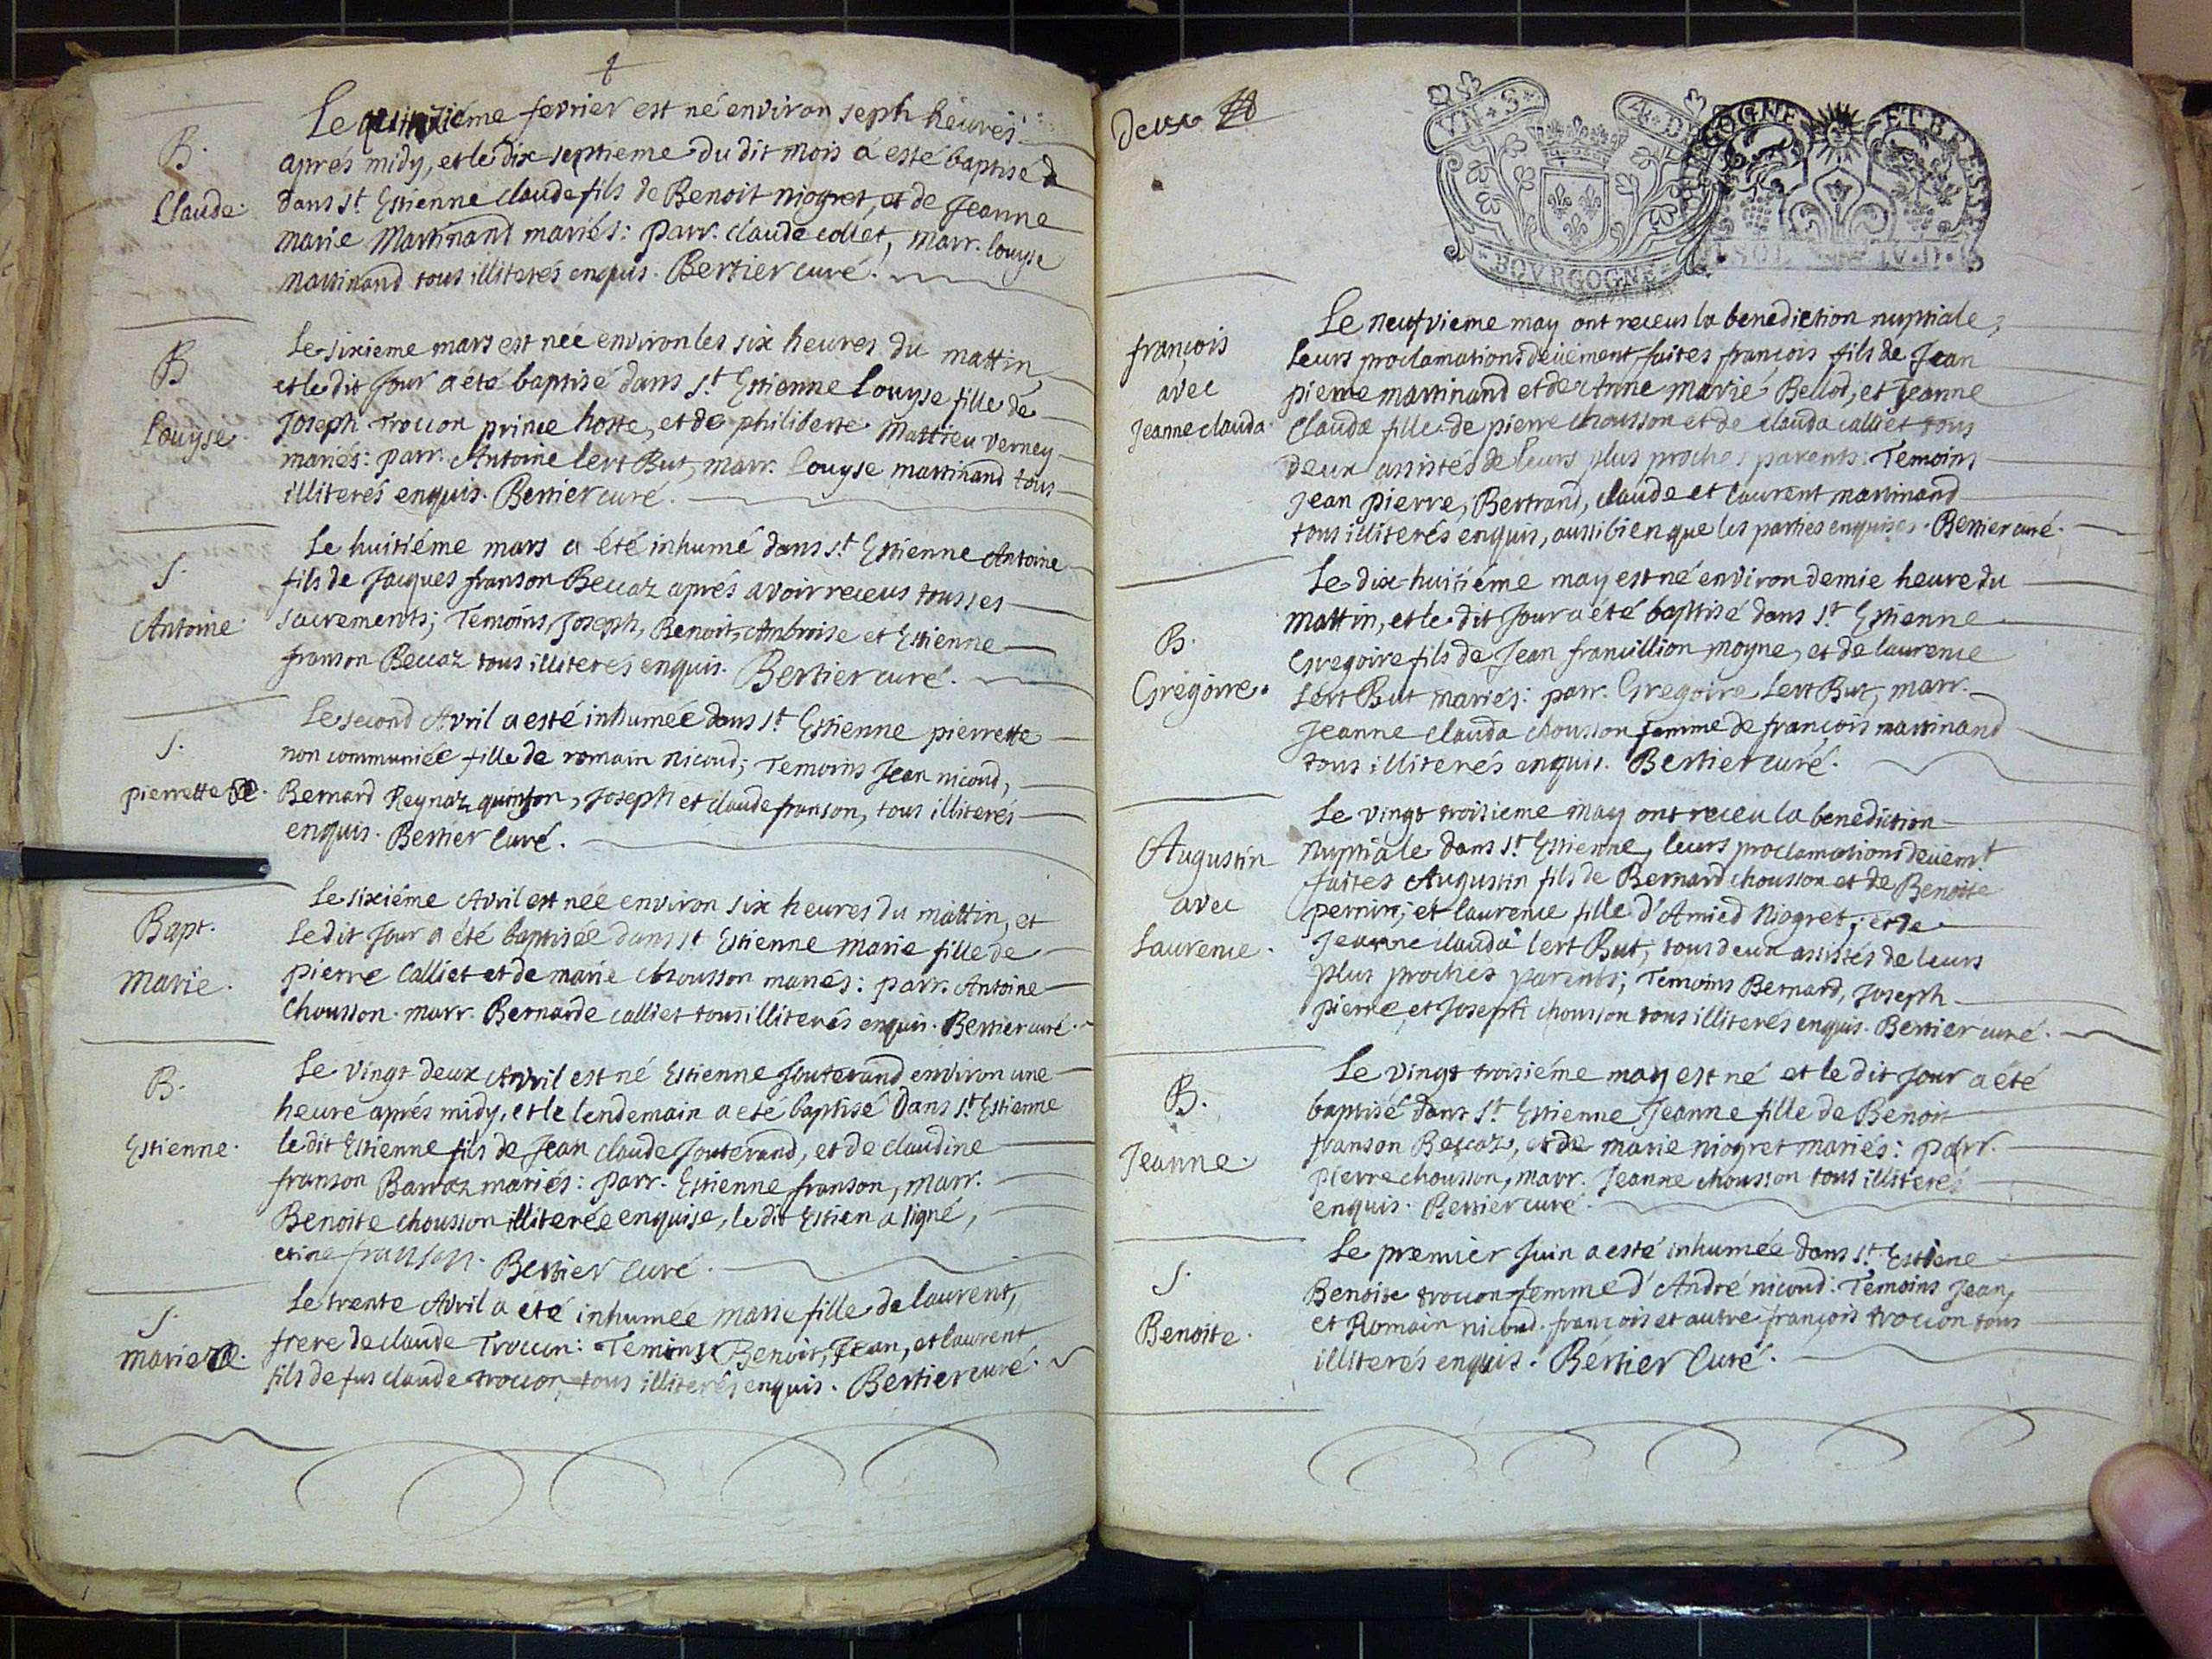 B.
Claude.
Le quinziéme fevrier est né environ seph heures
aprés midy, et le dix-septieme du dit mois a esté baptisé
dans st. Estienne claude fils de Benoit niogret, et de Jeanne
marie Martinand mariés: parr. claude collet, marr. louyse
martinand tous illiterés enquis. Bertier curé.
B
Louyse.
Le sixieme mars est née environ les six heures du mattin,
et le dit Jour a été baptisé dans st. Estienne Louyse fille de
Joseph trocon prince hoste, et de philiberte Mattieu verney
mariés: parr. Antoine lert But, marr. Louyse martinand tous
illiterés enquis. Bertier curé.
S.
Antoine
Le huitiéme mars a été inhumé dans st. Estienne Antoine
fils de Jacques franson Beccaz aprés avoir receus tous ses
sacrements; Temoins, Joseph, Benoit, Ambroise et Estienne
franson Beccaz tous illiterés enquis. Bertier curé.
S.
pierrette
Le second Avril a esté inhumée dans st. Estienne pierrette
non communiée fille de romain nicoud; Temoins Jean nicoud,
Bernard Reynaz quinson, Joseph et claude franson, tous illiterés
enquis. Bertier Curé.
Bapt.
Marie.
Le sixiéme Avril est née environ six heures du mattin, et
Le dit Jour a été baptisée dans st Estienne Marie fille de
pierre Calliet et de marie chousson mariés: parr. Antoine
Chousson. marr. Bernarde calliet tous illiterés enquis. Bertier curé.
B.
Estienne.
Le vingt deux Avril est né Estienne Jouterand environ une
heure aprés midy, et le lendemain a eté baptisé Dans st. Estienne
le dit Estienne fils de Jean claude Jouterand, et de claudine
franson Barraz mariés: parr. Estienne franson, marr.
Benoite chousson illiterée enquise, le dit Estien a signé,
etine franson. Bertier Curé.
S.
marie
Le trente Avril a été inhumée marie fille de laurent,
frere de claude Trocon: Temins Benoit, Jean, et laurent
fils de fus claude trocon tous illiterés enquis. Bertier curé.
deux
VN . S A . D
BOVRGOGNE
BOVRGOGNE ET BRESSE
françois
avec
Jeanne clauda.
Le neufvieme may ont receus la benediction nuptiale,
Leurs proclamations deüement faites françois fils de Jean
pierre martinand et de Anne marie Bellod, et Jeanne
Clauda fille de pierre chousson et de clauda calliet tous
deux assistés de leurs plus proches parents: Temoins
Jean pierre, Bertrand, claude et laurent martinand
tous illiterés enquis, aussi bien que les parties enquises. Bertier curé.
B.
Gregoire.
Le dix-huitiéme may est né environ demie heure du
mattin, et le dit Jour a été baptisé dans st. Estienne
Gregoire fils de Jean francillion moyne, et de laurence
Lert But mariés: parr. Gregoire Lert But, marr.
Jeanne clauda chousson femme de françois martinand
tous illiterés enquis. Bertier curé.
Augustin
avec
Laurence.
Le vingt troisieme may ont receu la benediction
nuptiale dans st. Estienne, leurs proclamations deüemt
faites Augustin fils de Bernard chousson et de Benoite
pernin; et laurence fille d'Amied Niogret, et de
Jeanne clauda lert But, tous deux assistés de leurs
plus proches parents; Temoins Bernard, Joseph
pierre et Joseph chousson tous illiterés enquis. Bertier curé.
B.
Jeanne.
Le vingt troisiéme may est né et le dit Jour a été
baptisé dans st. Estienne Jeanne fille de Benoit
franson Beccaz, et de marie niogret mariés: parr.
pierre chousson, marr. Jeanne chousson tous illiteré
enquis. Bertier curé.
S.
Benoite.
Le premier Juin a esté inhumée dans st. Estiene
Benoite trocon femme d'André nicoud: Temoins Jean,
et Romain nicoud. françois et autre françois trocon tous
illiterés enquis. Bertier Curé.